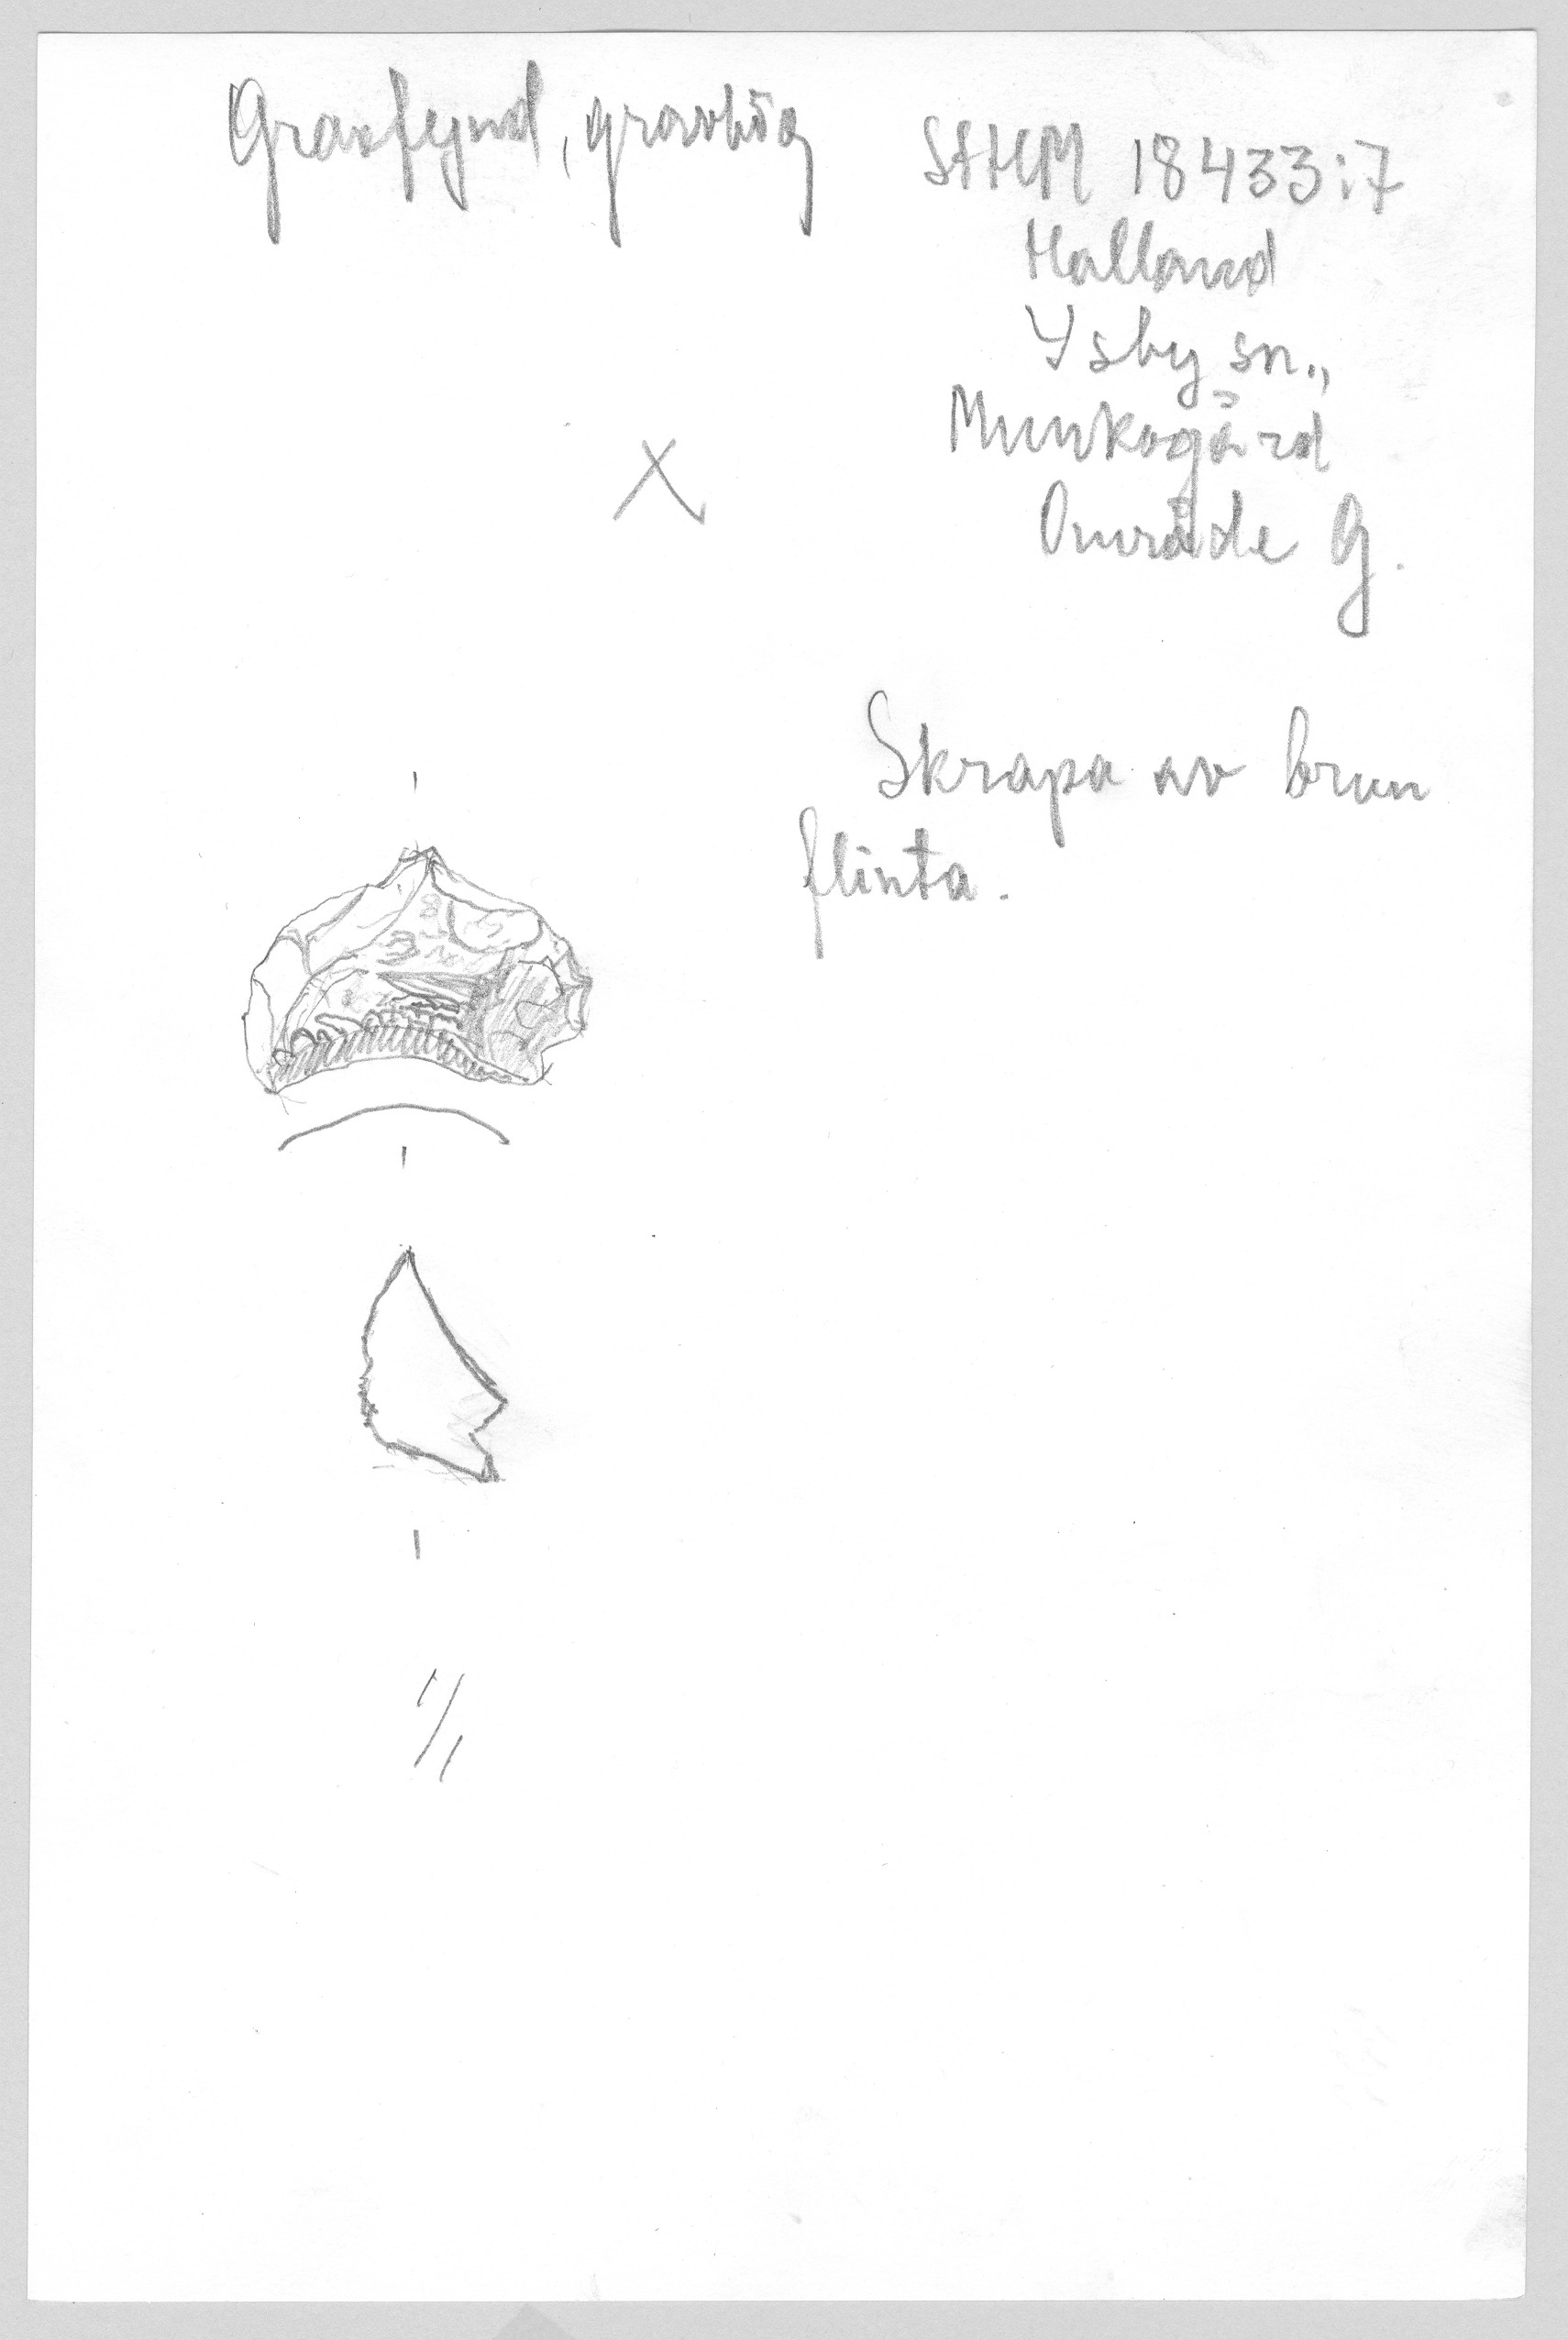 Gravfynd, gravhög
StHM 18433:7
Halland
Ysby sn.,
Munkagård
Område G.
X
Skrapa av brun
flinta.
1/1